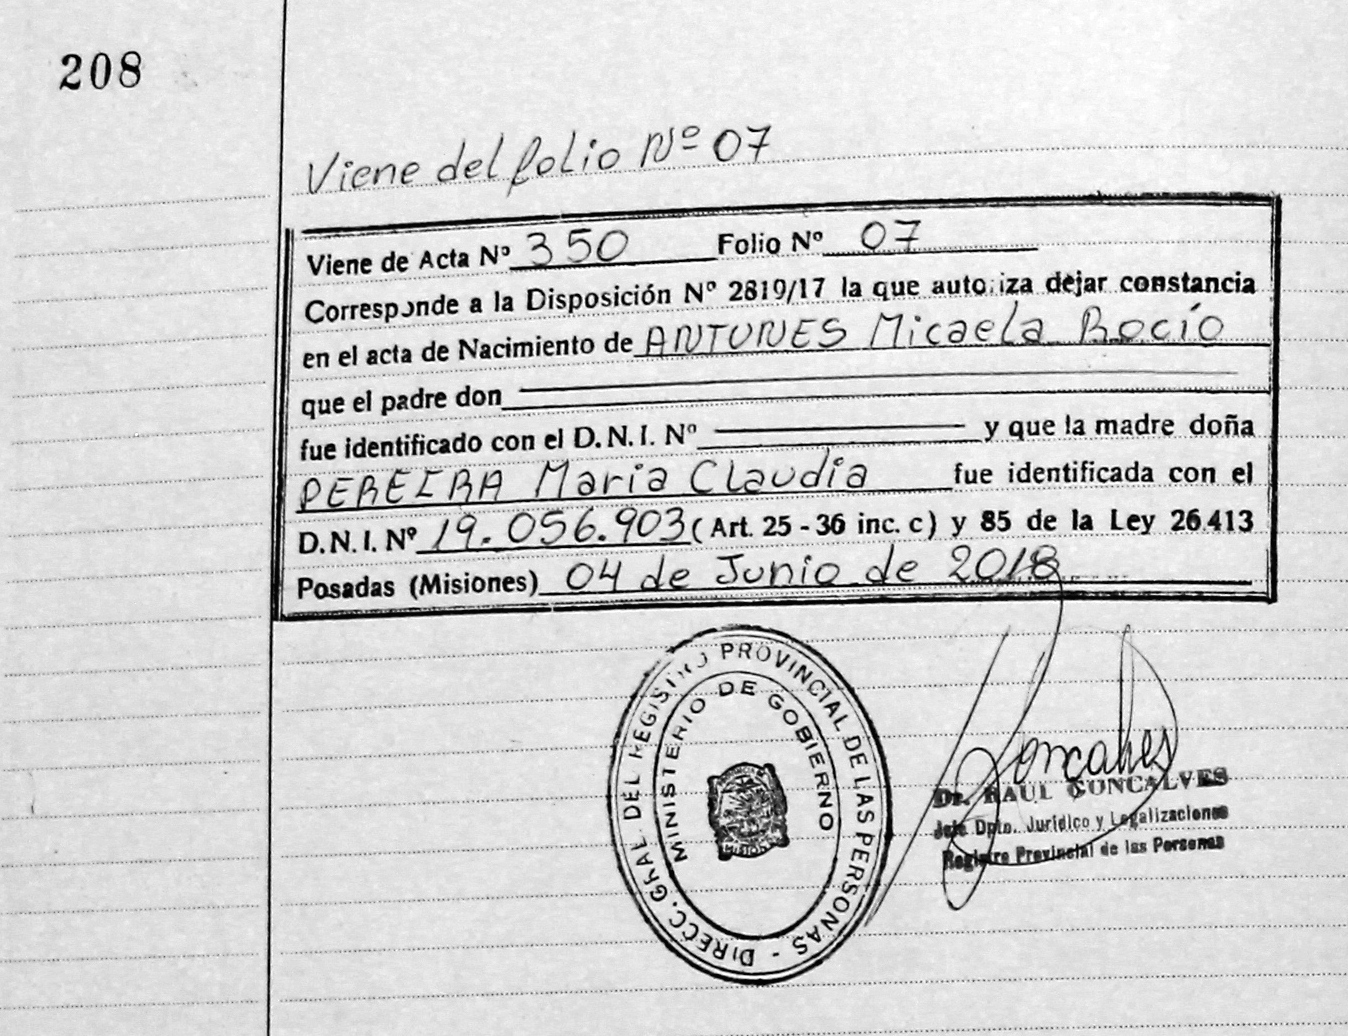 208
Viene del folio Nº 07
Viene de Acta Nº 350 Folio Nº 07
Corresponde a la Disposición Nº 2819/17 la que autoriza dejar constancia
en el acta de Nacimiento de ANTUNES Micaela Rocío
que el padre don
fue identificado con el D.N.I. Nº y que la madre doña
PEREIRA Maria Claudia fue identificada con el
D.N.I. Nº 19.056.903 (Art. 25 - 36 inc. c) y 85 de la Ley 26.413
Posadas (Misiones) 04 de Junio de 2018
DIRECC. GRAL DEL REGISTRO PROVINCIAL DE LAS PERSONAS -
MINISTERIO DE GOBIERNO
PROVINCIA DE
MISIONES
Goncalves
Dr. RAUL GONCALVES
Jefe Dpto. Jurídico y Legalizaciones
Registro Provincial de las Personas